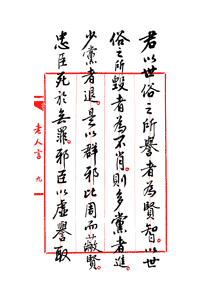 君以世俗之所譽者為賢智以世
俗之所毀者為不肖則多黨者進
少黨者退是以群邪比周而蔽賢
忠臣死於無罪邪臣以虛譽取
老人言 九